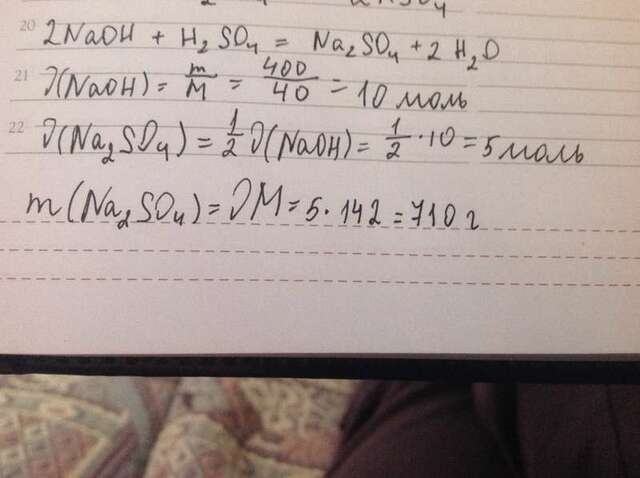 20 2NaOH + H₂SO₄ = Na₂SO₄ + 2 H₂O
21 ν(NaOH) = m/M = 400/40 = 10 моль
22 ν(Na₂SO₄) = 1/2 ν(NaOH) = 1/2 · 10 = 5 моль
m(Na₂SO₄) = νM = 5 · 142 = 710 г